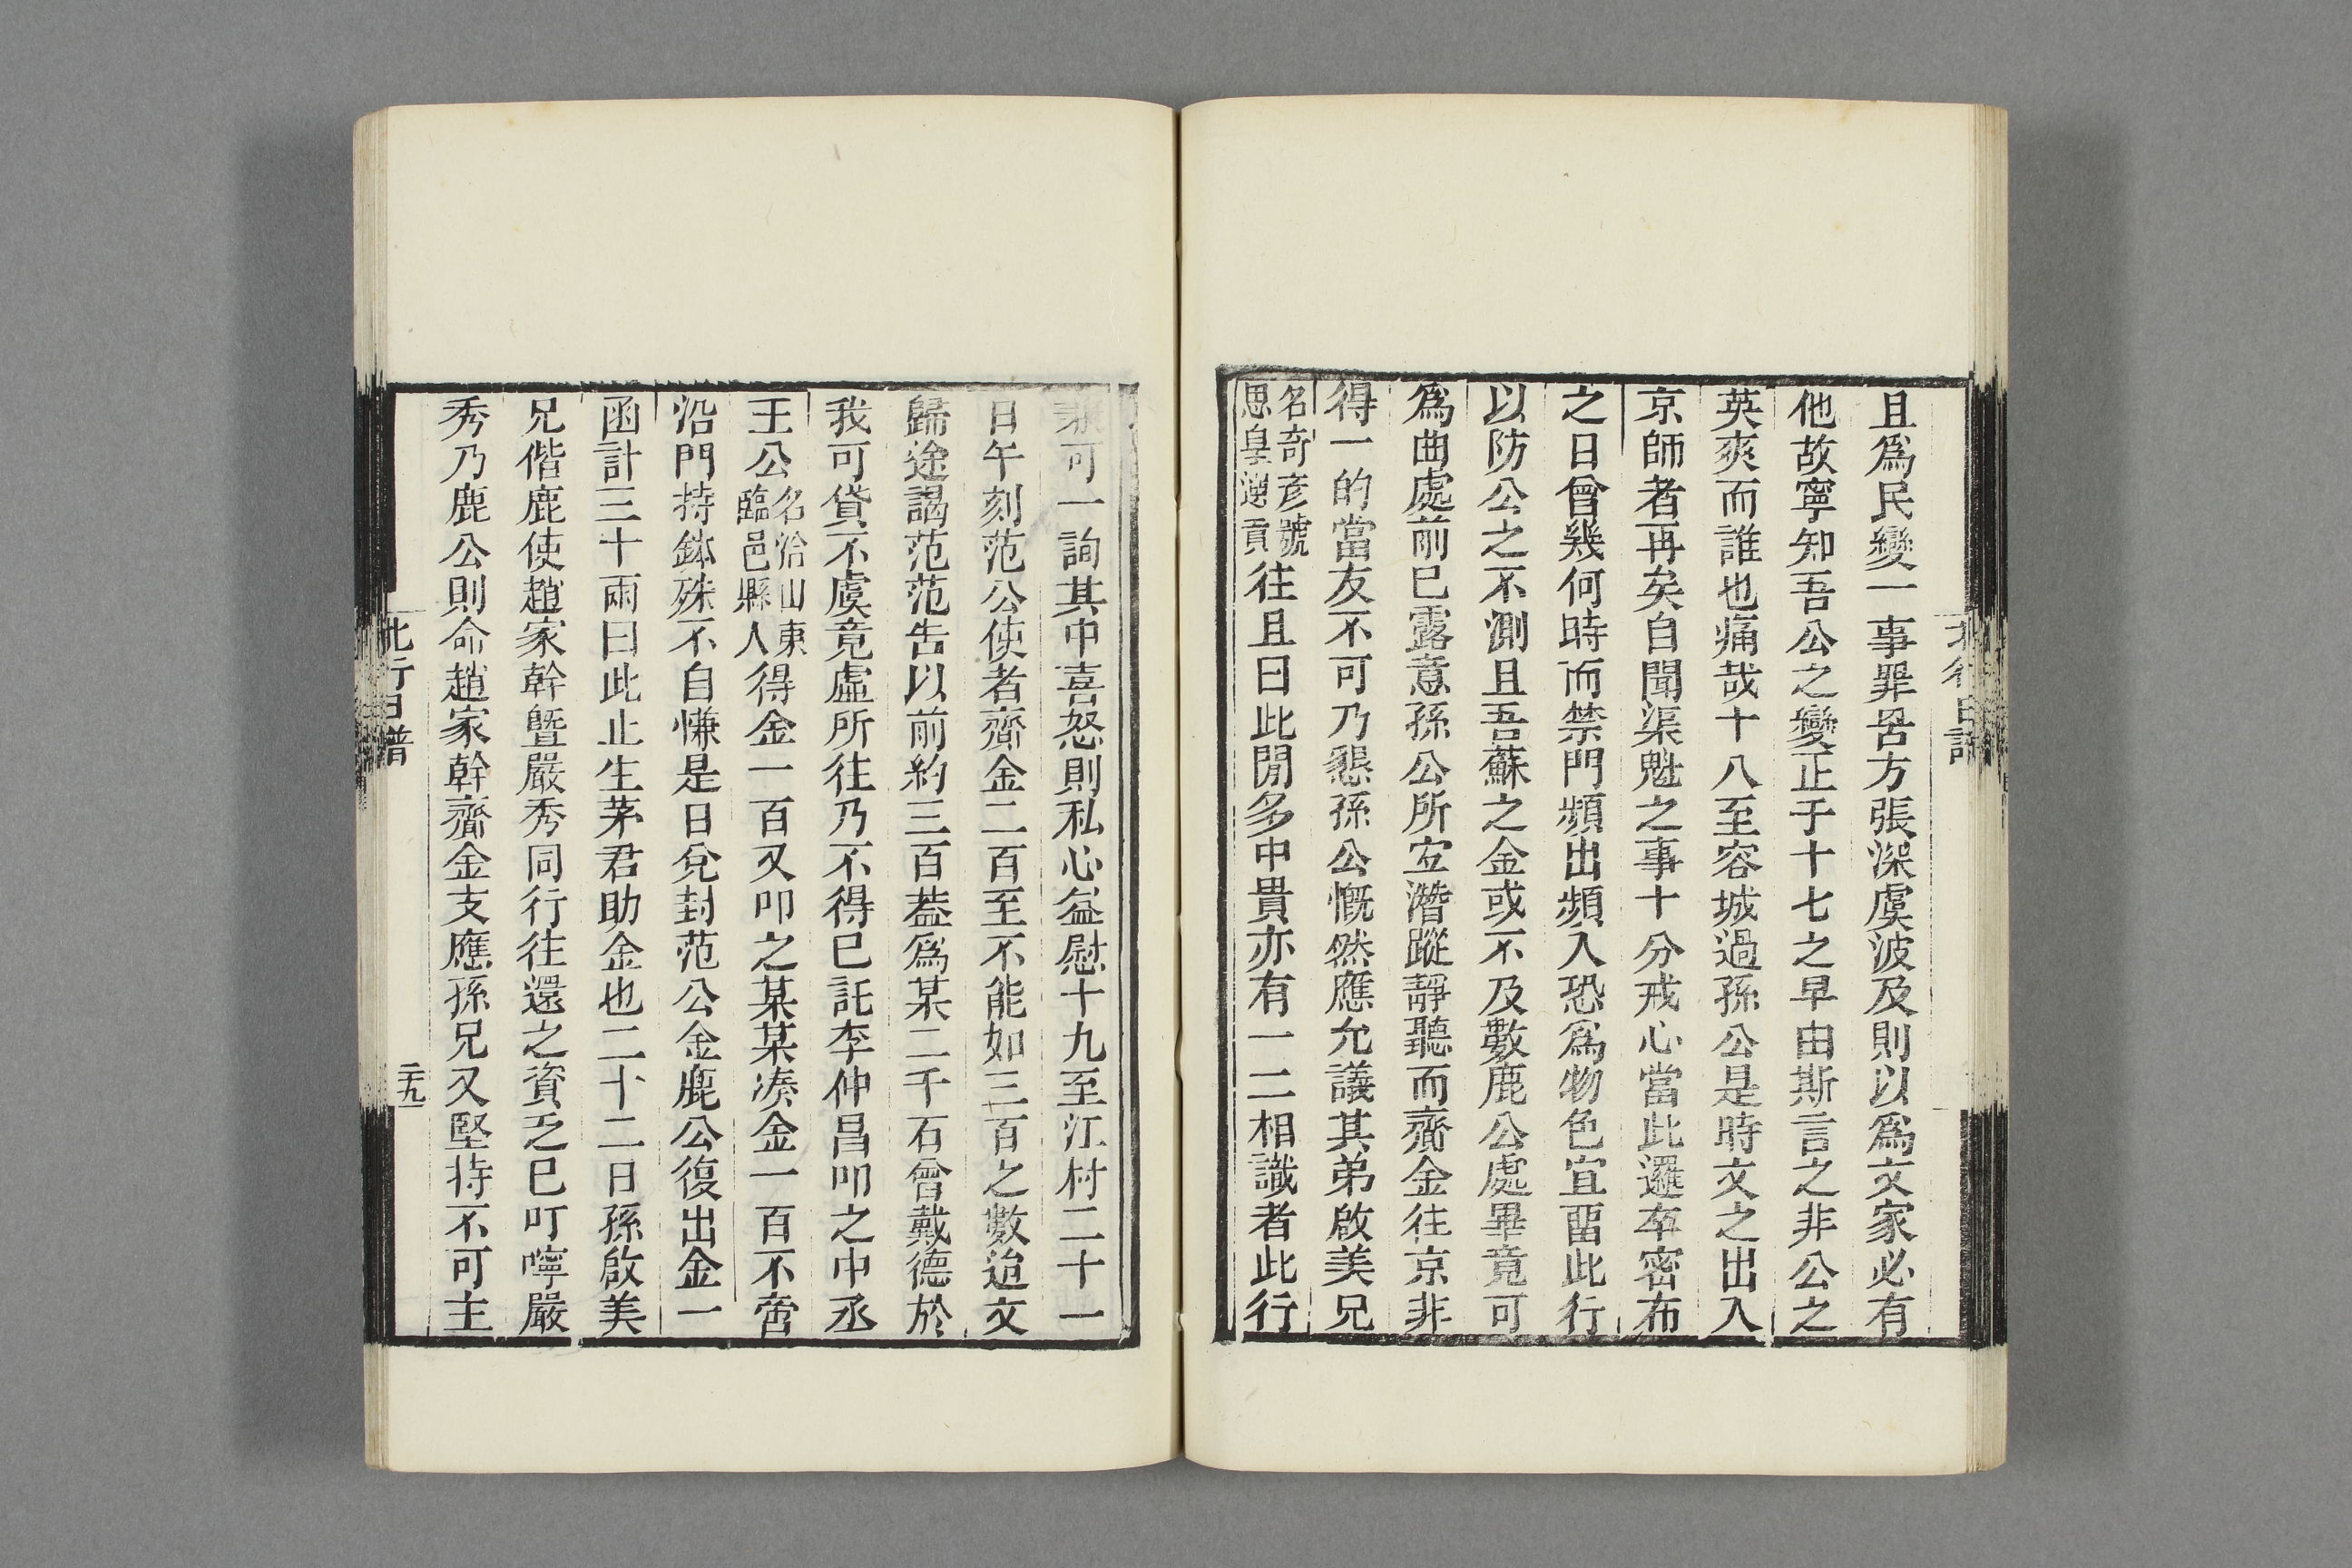 且爲民變一事罪罟方張深虞波及則以爲文家必有
他故寧知吾公之變正于十七之早由斯言之非公之
英爽而誰也痛哉十八至容城過孫公是時文之出入
京師者再矣自聞渠魁之事十分戒心當此邏卒密布
之日曾幾何時而禁門頻出頻入恐爲物色宜畱此行
以防公之不測且吾蘇之金或不及數鹿公處畢竟可
爲曲處前已露意孫公所宜潛蹤靜聽而齎金往京非
得一的當友不可乃懇孫公慨然應允議其弟啟美兄
名奇彥號
思皇選貢
往且曰此閒多中貴亦有一二相識者此行
北行日譜
兼可一詢其中喜怒則私心益慰十九至江村二十一
日午刻范公使者齎金二百至不能如三百之數迨文
歸途謁范范告以前約三百葢爲某二千石曾戴德於
我可貸不虞竟虛所往乃不得已託李仲昌叩之中丞
王公
名洽山東
臨邑縣人
得金一百又叩之某某湊金一百不啻
沿門持鉢殊不自慊是日兌封范公金鹿公復出金一
函計三十兩曰此止生茅君助金也二十二日孫啟美
兄偕鹿使趙家幹曁嚴秀同行往還之資乏已叮嚀嚴
秀乃鹿公則命趙家幹齎金支應孫兄又堅持不可主
北行日譜
二十九